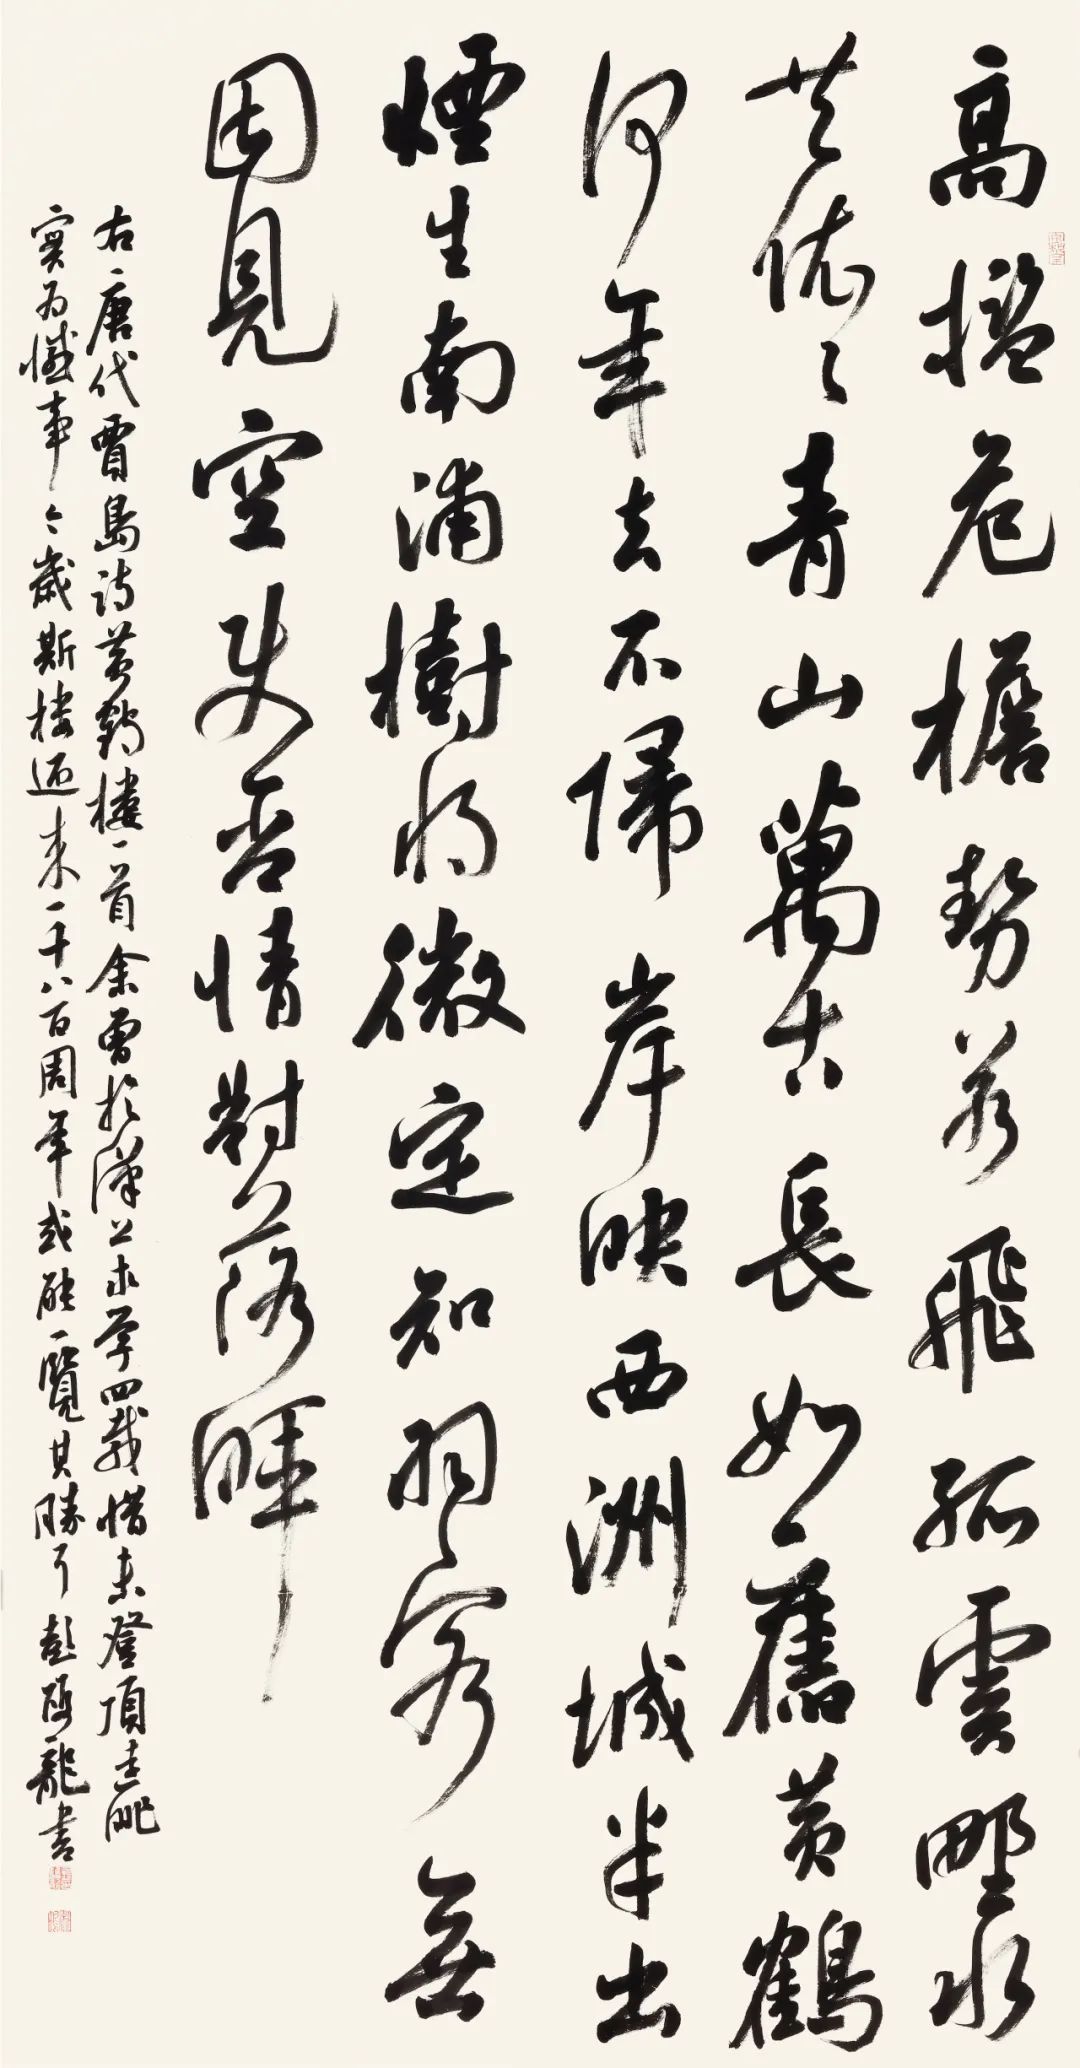 高檻危檐勢若飛孤雲野水
共依々青山萬古長如舊黄鶴
何年去不歸岸映西洲城半出
煙生南浦樹將微定知羽客無
因見空使含情對落暉
右唐代賈島詩黄鶴樓一首余曾於漢上求学四載惜未登項遠眺
實爲憾事今歲斯樓迎来一千八百周年或能一覽其勝了彭龍書